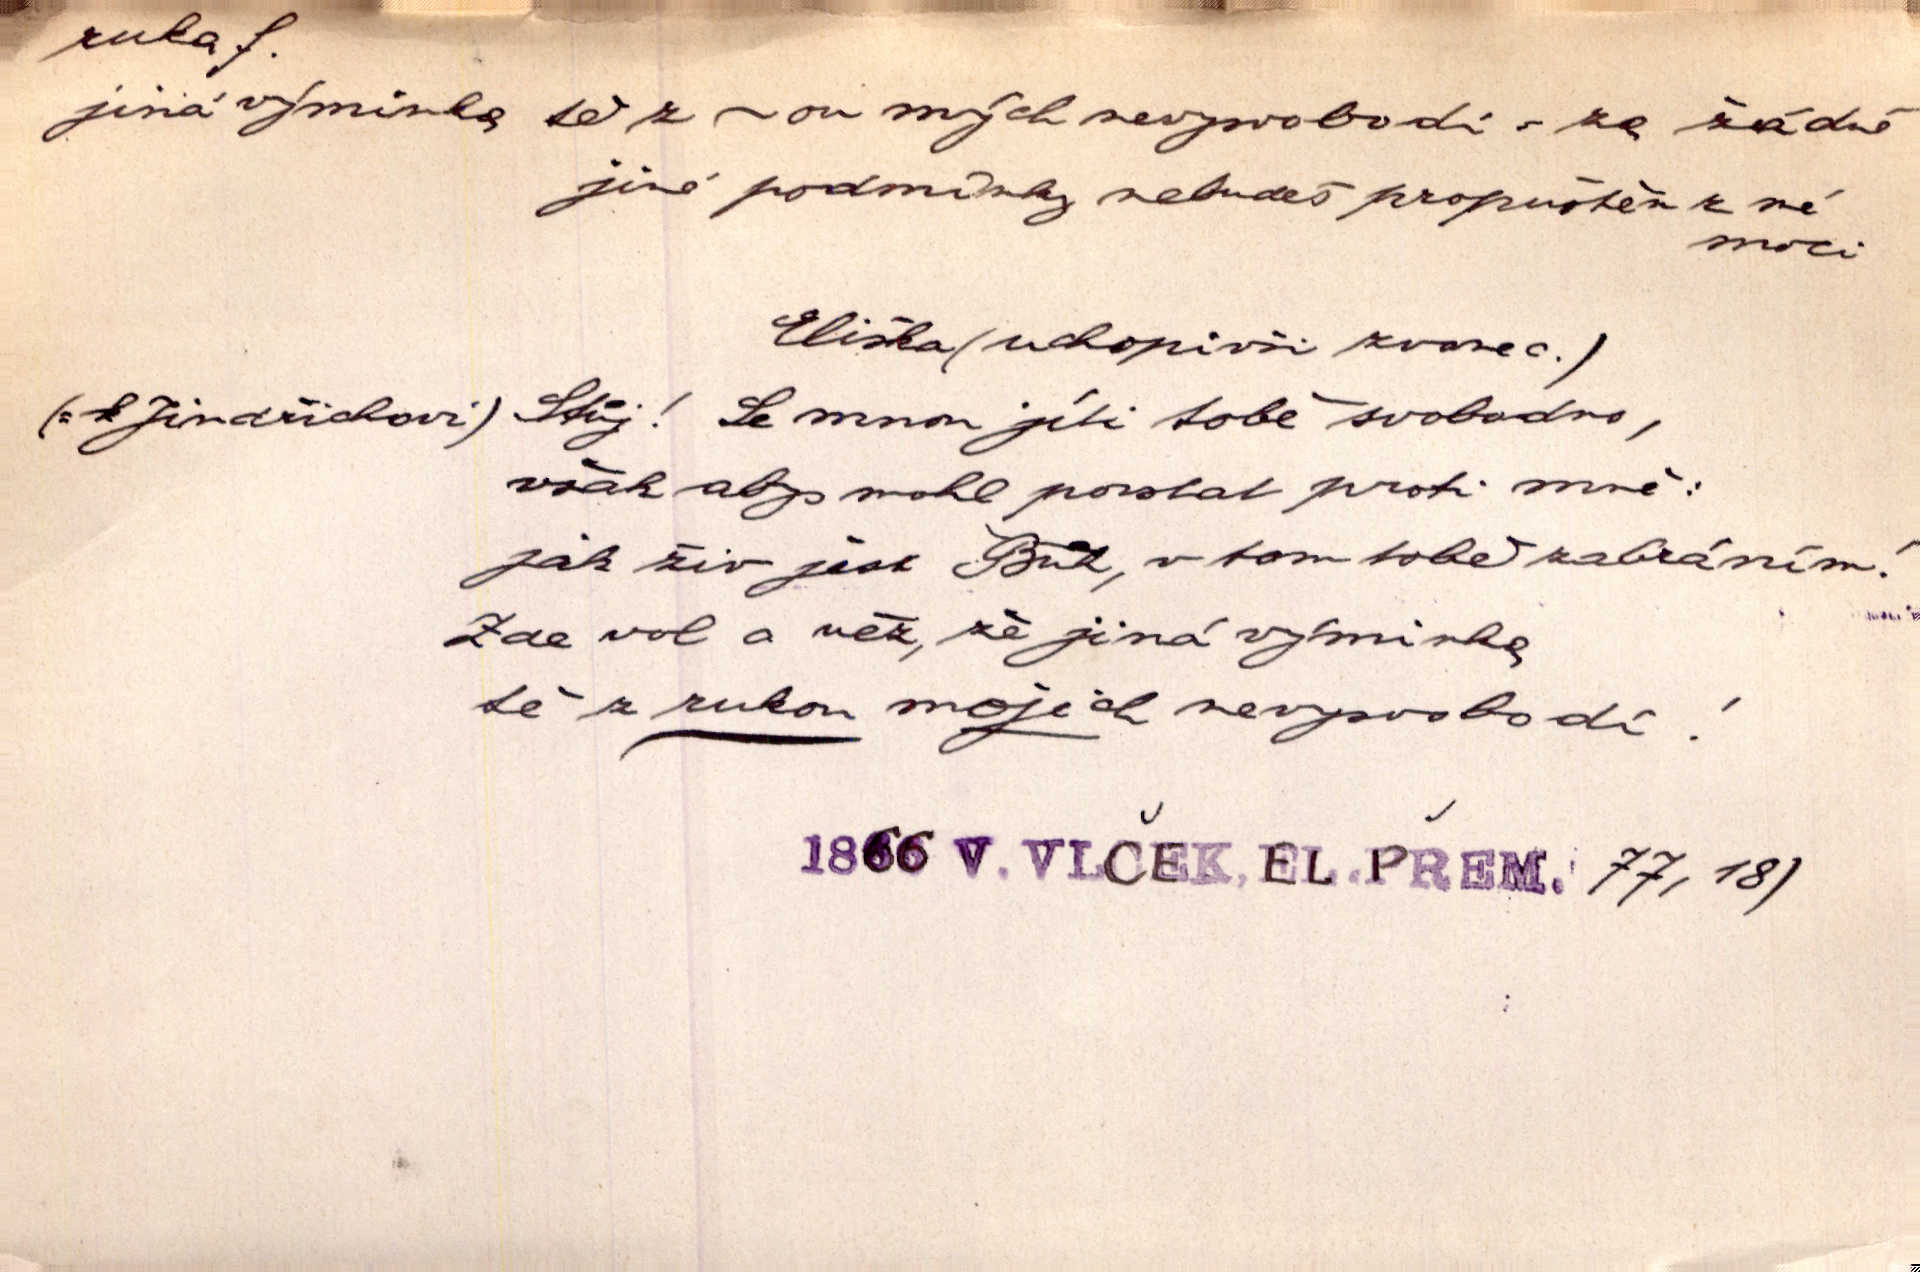 ruka f.
jiná výminka tě z ~ou mých nevysvobodí = za žádné
jiné podmínky nebudeš propuštěn z mé
moci
Eliška (uchopivši zvonec.)
(= k Jindřichovi) Stůj! Se mnou jíti tobě svobodno,
však abys mohl povstat proti mně:
jak živ jest Bůh, v tom tobě zabráním!
Zde vol a věz, že jiná výminka
tě z rukou mojich nevysvobodí!
1866 V. VLČEK, EL. PŘEM. 77, 18)